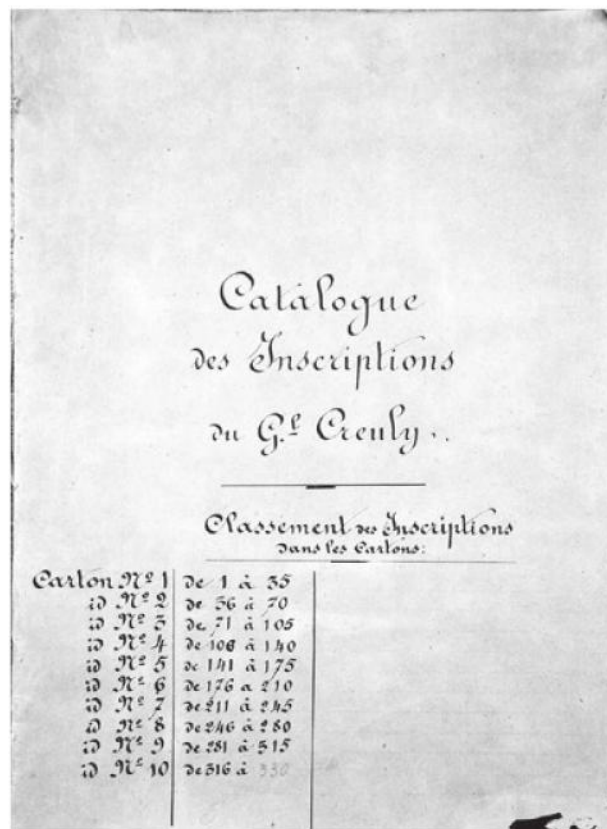 Catalogue
des Inscriptions
du G.l Creuly..
Classement des Inscriptions
dans les Cartons:
Carton No 1 de 1 à 35
id No 2 de 36 à 70
id No 3 de 71 à 105
id No 4 de 106 à 140
id No 5 de 141 à 175
id No 6 de 176 a 210
id No 7 de 211 à 245
id No 8 de 246 à 280
id No 9 de 281 à 315
id No 10 de 316 à 330